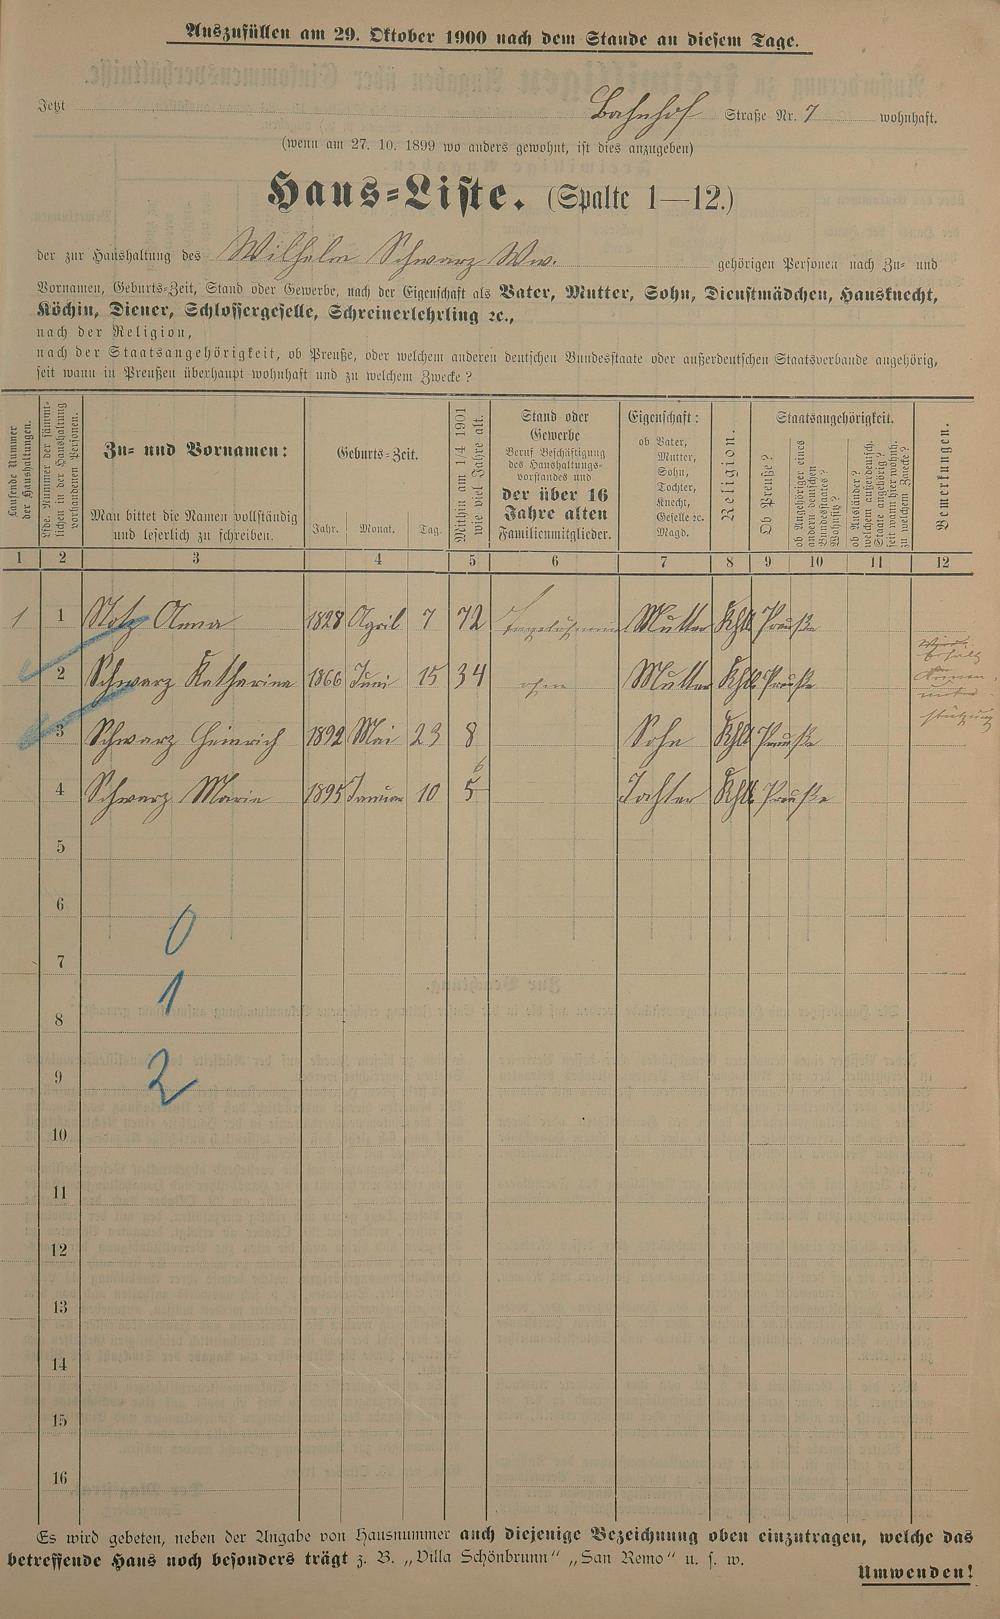 Auszufüllen am 29. Oktober 1900 nach dem Stande an diesem Tage.
Jetzt Bahnhof Straße Nr. 7 wohnhaft.
(wenn am 27. 10. 1899 wo anders gewohnt, ist dies anzugeben)
Haus=Liste. (Spalte 1—12.)
der zur Haushaltung des Wilhelm Schwarz Ww. gehörigen Personen nach Zu= und
Vornamen, Geburts=Zeit, Stand oder Gewerbe, nach der Eigenschaft als Vater, Mutter, Sohn, Dienstmädchen, Hausknecht,
Köchin, Diener, Schlossergeselle, Schreinerlehrling ꝛc.,
nach der Religion,
nach der Staatsangehörigkeit, ob Preuße, oder welchem anderen deutschen Bundesstaate oder außerdeutschen Staatsverbande angehörig,
seit wann in Preußen überhaupt wohnhaft und zu welchem Zwecke?
Laufende Nummer der Haushaltungen.
Lfde. Nummer der sämmtlichen in der Haushaltung vorhandenen Personen.
Zu= und Vornamen:
Man bittet die Namen vollständig
und leserlich zu schreiben.
Geburts=Zeit.
Jahr. Monat. Tag.
Mithin am 1/4 1901 wie viel Jahre alt.
Stand oder
Gewerbe
Beruf Beschäftigung
des Haushaltungs-
vorstandes und
der über 16
Jahre alten
Familienmitglieder.
Eigenschaft:
ob Vater,
Mutter,
Sohn,
Tochter,
Knecht,
Geselle ꝛc.
Magd.
Religion.
Staatsangehörigkeit.
Ob Preuße?
ob Angehöriger eines andern deutschen Bundesstaates? Wohnsitz?
ob Ausländer? welchem außerdeutsch. Staate angehörig? seit wann hier wohnh. zu welchem Zwecke?
Bemerkungen.
1 2 3 4 5 6 7 8 9 10 11 12
1 1 Stotz Anna 1828 April 7 72 Mutter Khl Preuße
2 Schwarz Katharina 1866 Juni 15 34 ohne Mutter Khl Preuße
3 Schwarz Heinrich 1892 Mai 23 8 Sohn Khl Preuße
4 Schwarz Marie 1895 Januar 10 5 6 Tochter Khl Preuße
erhält
Armen
unter
stützung
5
6
0
7
1
8
9
2
10
11
12
13
14
15
16
Es wird gebeten, neben der Angabe von Hausnummer auch diejenige Bezeichnung oben einzutragen, welche das
betreffende Haus noch besonders trägt z. B. „Villa Schönbrunn“ „San Remo“ u. s. w.
Umwenden!